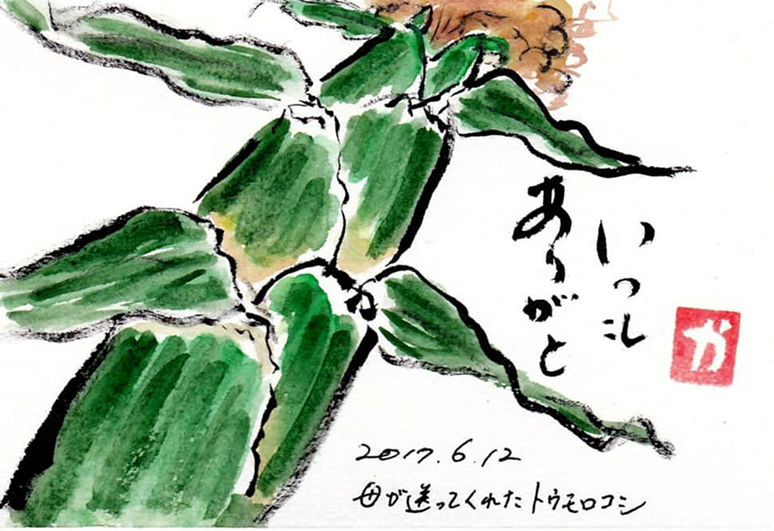 いつも
ありがと
カ
2017.6.12
母が送ってくれたトウモロコシ